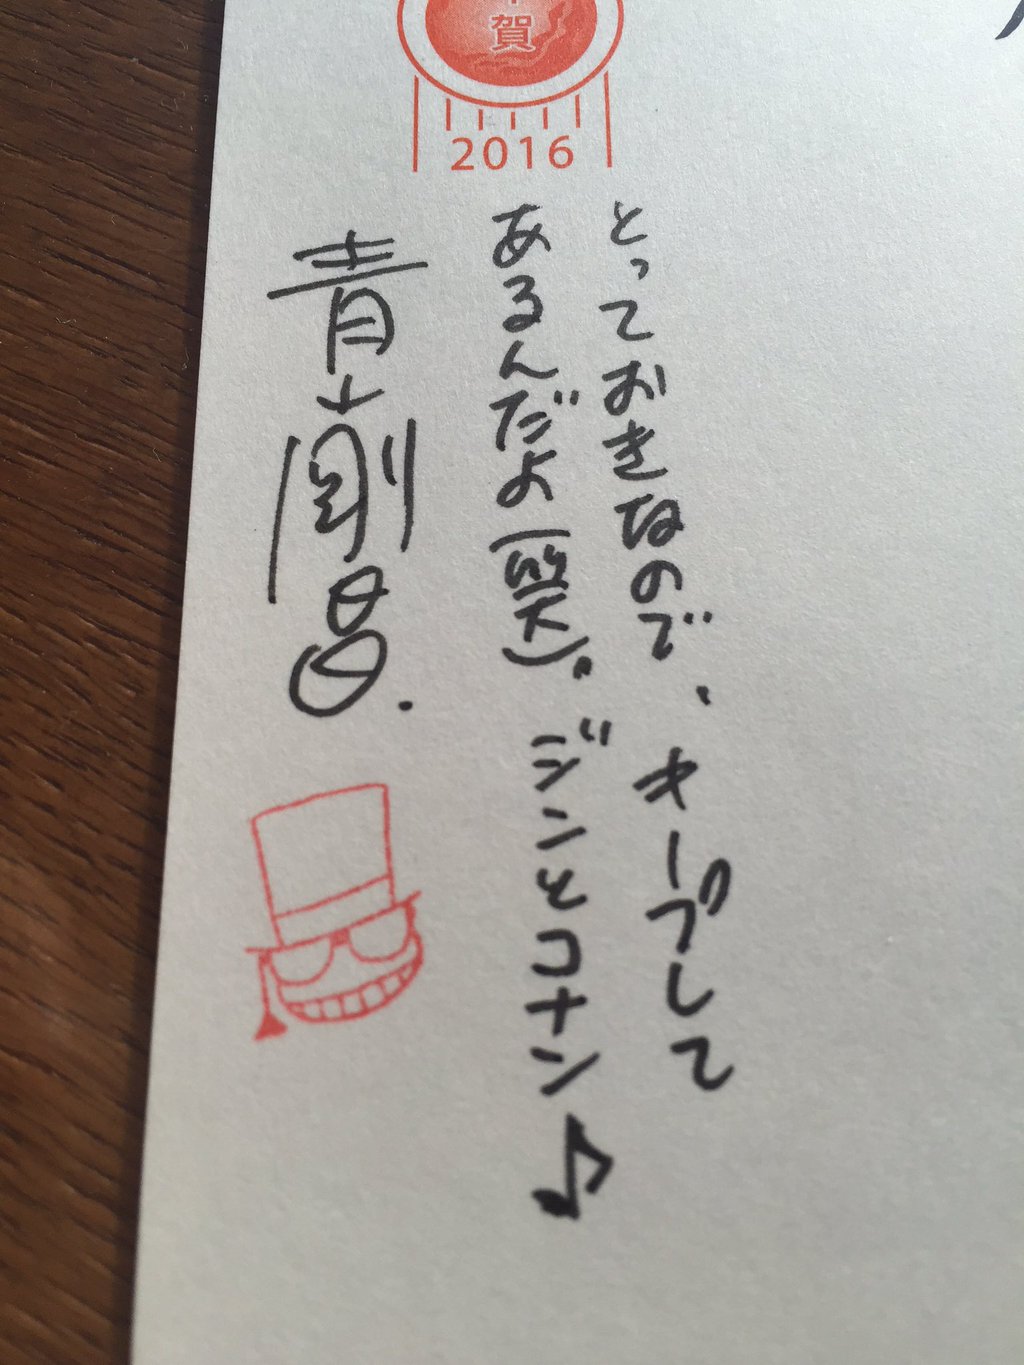 年賀
2016
とっておきなので、キープして
あるんだよ(笑)。ジンとコナン♪
青山剛昌.